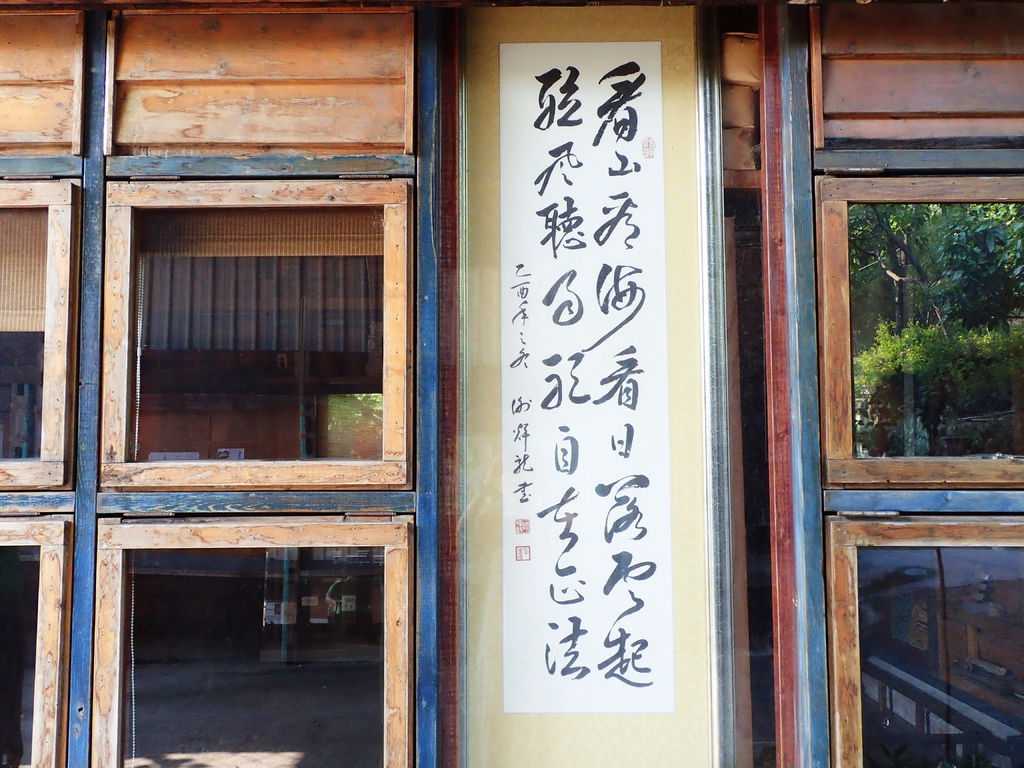 看山看海看日落雲起
聽風聽雨聽自在正法
乙酉年之冬 謝輝龍書